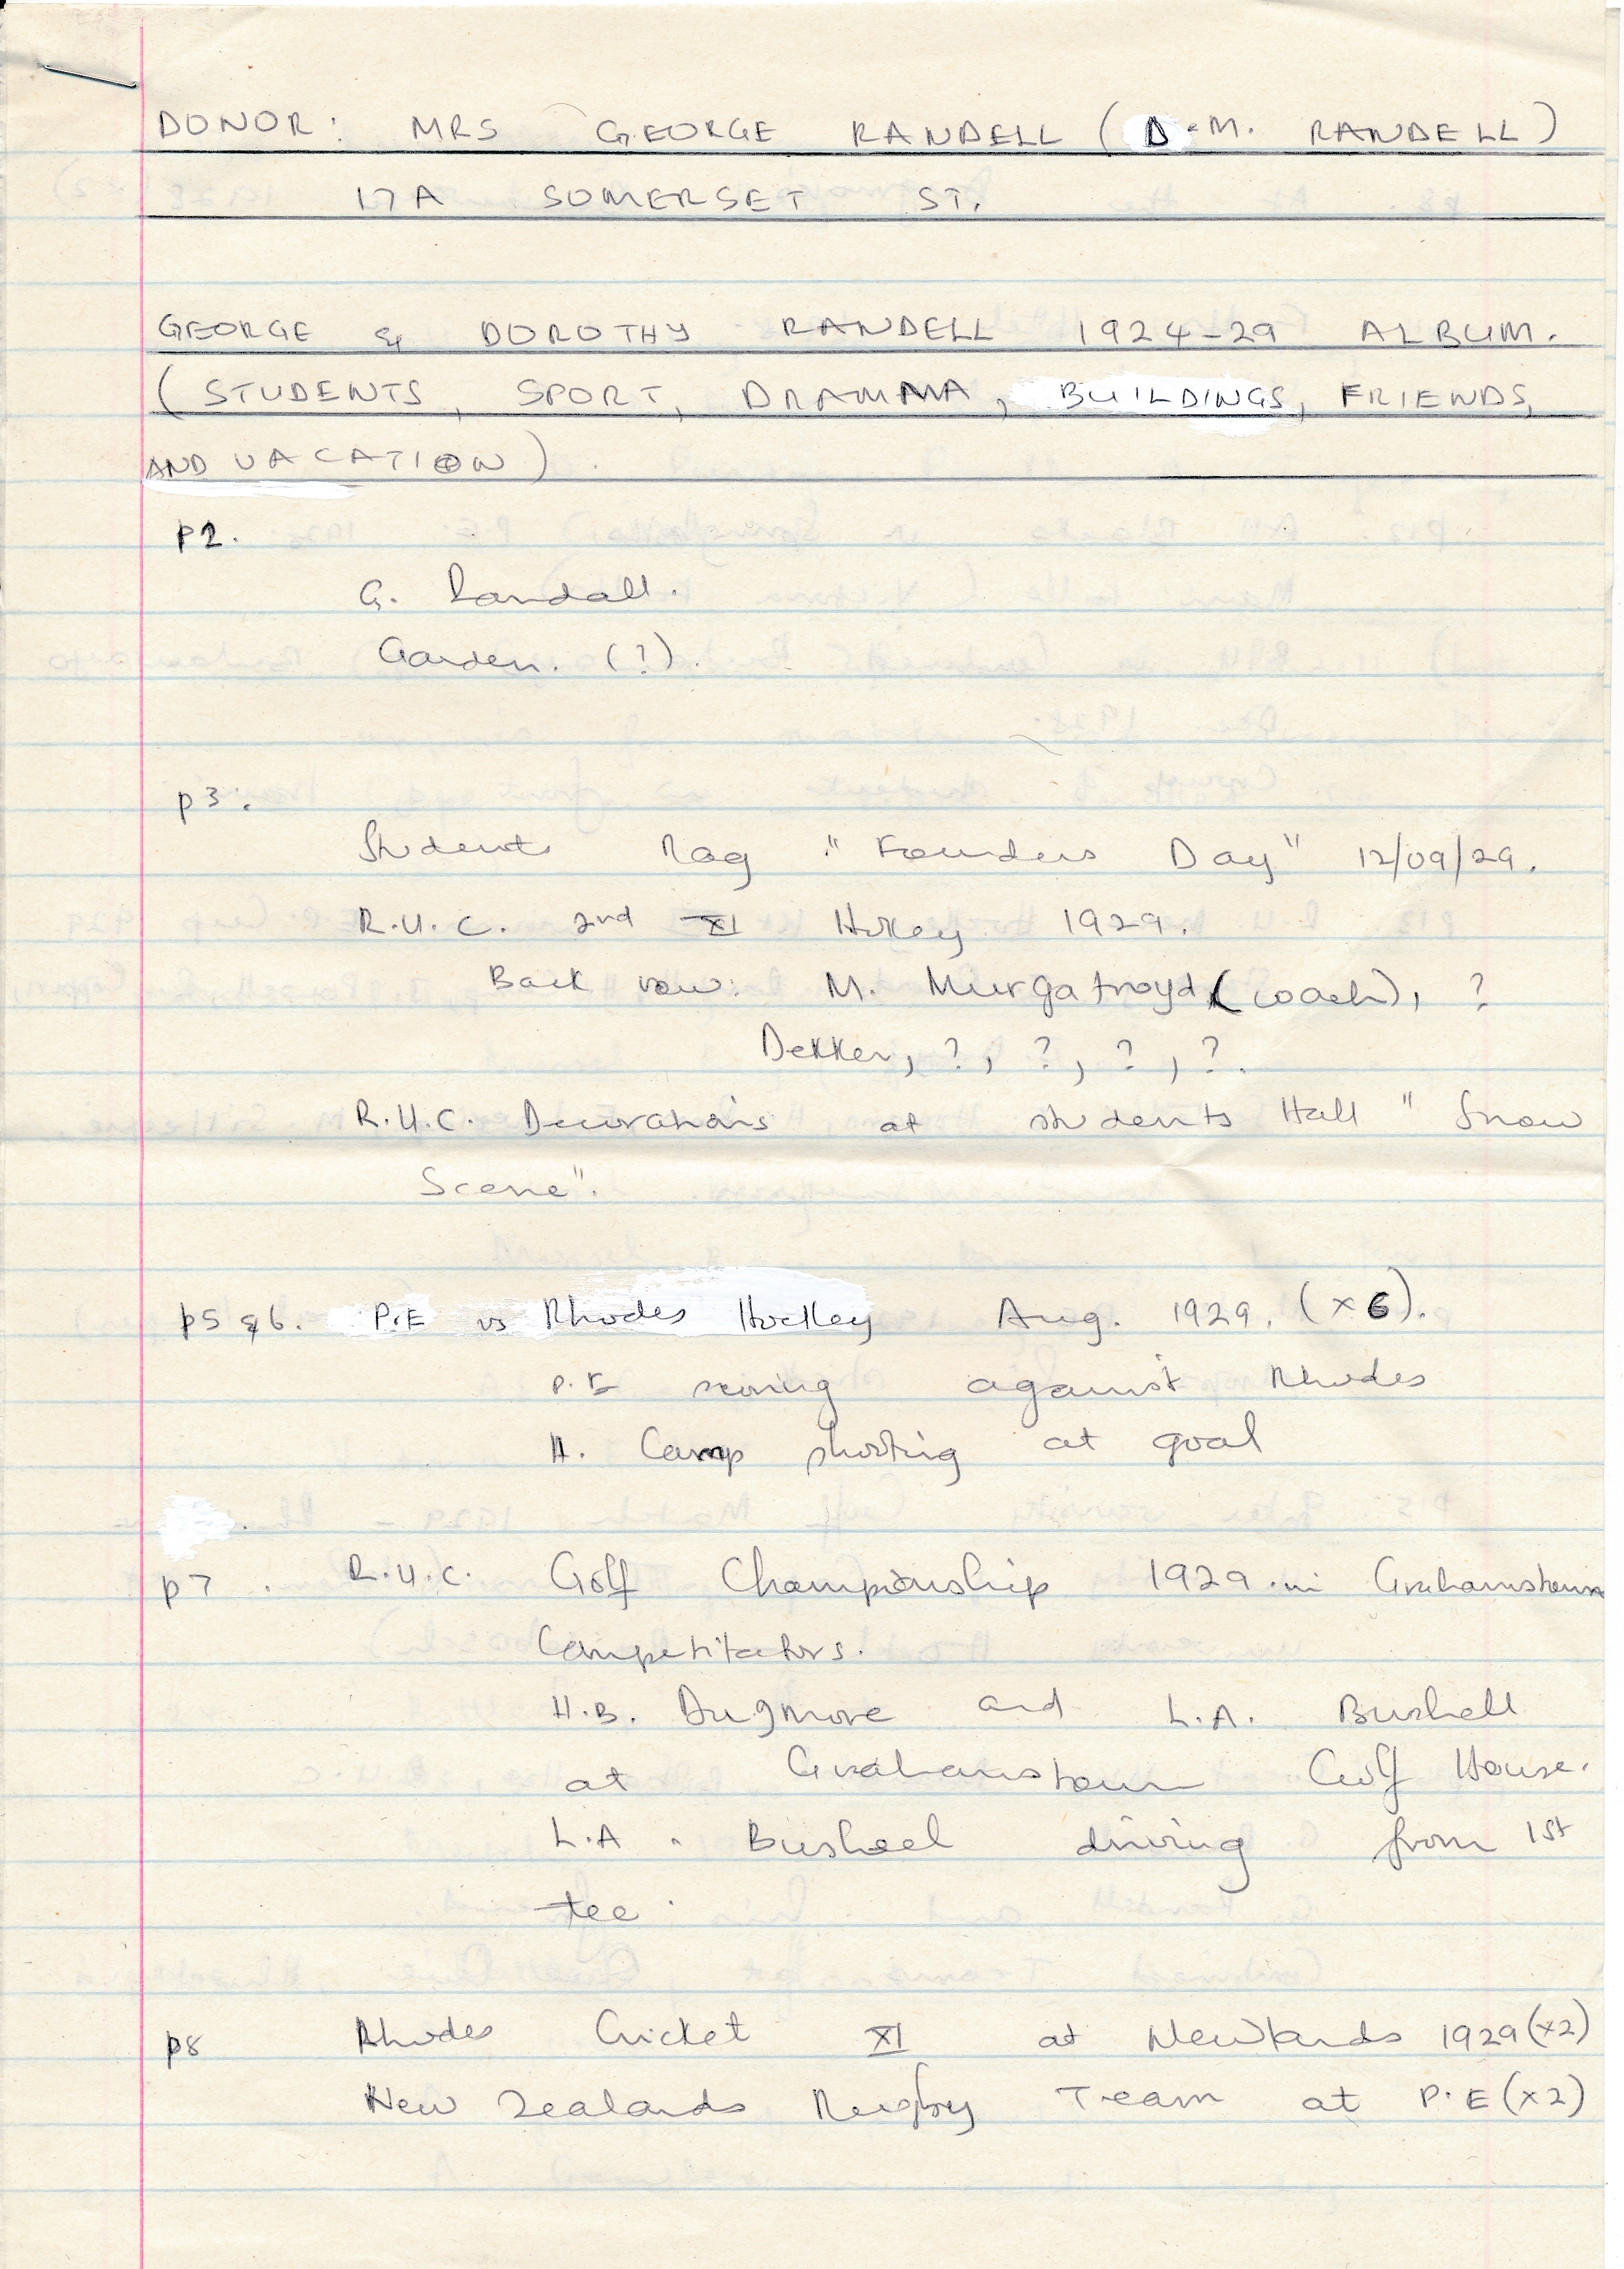 DONOR: MRS GEORGE RANDELL (D.M. RANDELL)
17A SOMERSET ST.
GEORGE & DOROTHY RANDELL 1924-29 ALBUM.
(STUDENTS, SPORT, DRAMMA, BUILDINGS, FRIENDS,
AND VACATION).
p2.
G. Randall.
Garden. (?).
p3.
Students Rag "Founders Day" 12/09/29.
R.U.C. 2nd XI Hockey 1929.
Back row: M. Murgatroyd (coach), ?
Dekker, ?, ?, ?, ?.
R.U.C. Decorations at students Hall "Snow
Scene".
p5 &6. P.E vs Rhodes Hockey Aug. 1929. (x6).
P.E scoring against Rhodes
H. Camp shooting at goal
p7. R.U.C. Golf Championship 1929.in Grahamstown
Competitators.
H.B. Dugmore and L.A. Bushell
at Grahamstown Golf House.
L.A. Bushell driving from 1st
tee.
p8 Rhodes Cricket XI at Newlands 1929 (x2)
New Zealands Rugby Team at P.E (x2)